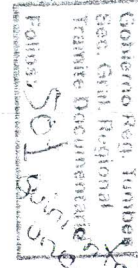 Gobierno Reg. Tumbes
Sec. Gral. Regional
Trámite Documentario
Folios: 501